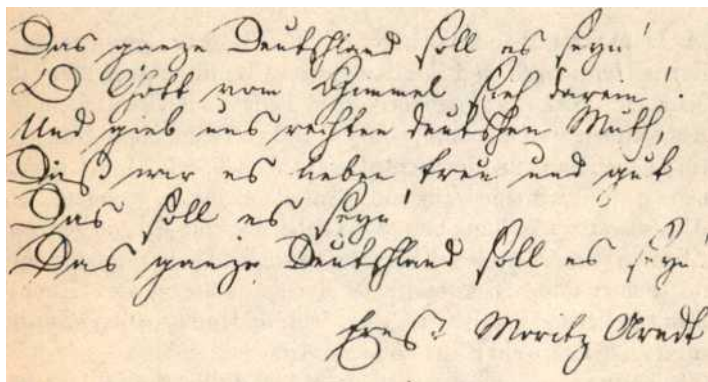 Das ganze Deutschland soll es seyn!
O Gott vom Himmel sieh darein!
Und gieb uns rechten deutschen Muth,
Daß wir es lieben treu und gut
Das soll es seyn!
Das ganze Deutschland soll es seyn!
Ernst Moritz Arndt